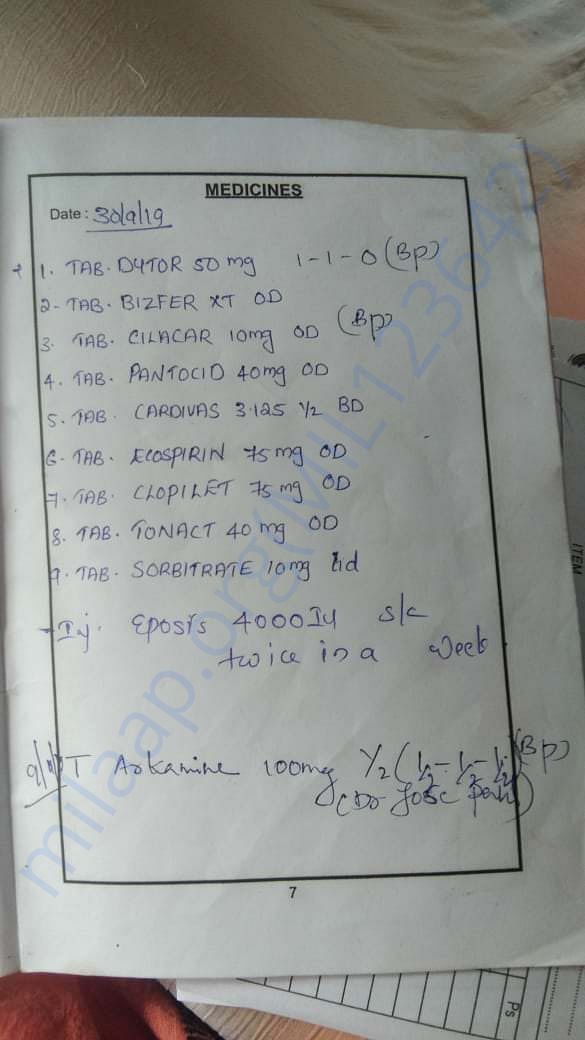 MEDICINES
Date: 30/9/19
1. TAB. DYTOR 50 mg 1-1-0 (BP)
2- TAB. BIZFER XT OD
3. TAB. CILACAR 10mg OD (BP)
4. TAB. PANTOCID 40mg OD
5. TAB. CARDIVAS 3.125 1/2 BD
6- TAB. ECOSPIRIN 75 mg OD
7. TAB. CLOPILET 75 mg OD
8. TAB. TONACT 40 mg OD
9. TAB. SORBITRATE 10mg
Inj. Eposis 4000IU s/c
twice in a week
T Arkamine 100mg 1/2 (1/2-1/2-1/2) (BP)
7
milaap.org(MIL1236427)
ITEM
Ps